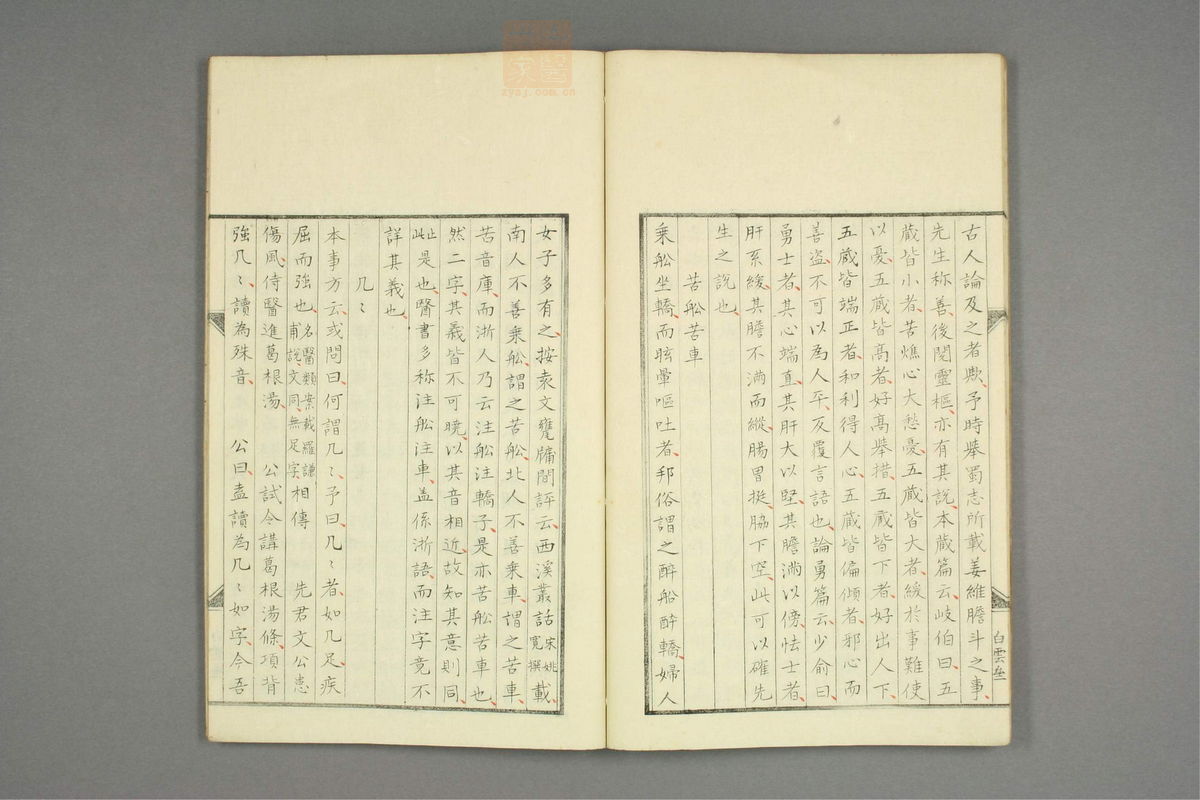 古人論及之者歟、予時舉蜀志所載姜維膽斗之事、
先生称善、後閱靈樞、亦有其說、本蔵篇云、岐伯曰、五
蔵皆小者、苦燋心大愁憂、五蔵皆大者、緩於事難使
以憂、五蔵皆高者、好高舉措、五蔵皆下者、好出人下、
五蔵皆端正者、和利得人心、五蔵皆偏傾者、邪心而
善盗、不可以為人平、反覆言語也、論勇篇云、少俞曰、
勇士者、其心端直、其肝大以堅、其膽滿以傍、怯士者、
肝系緩、其膽不滿而縱、腸胃挺、脇下空、此可以確先
生之說也、
苦舩苦車
乘舩坐轎、而眩暈嘔吐者、邦俗謂之醉船醉轎、婦人
白雲
女子多有之、按袁文甕牖間評云、西溪叢話宋姚寬撰載、
南人不善乘舩、謂之苦舩、北人不善乘車、謂之苦車、
苦音庫、而浙人乃云注舩注轎子、是亦苦舩苦車也、
然二字、其義皆不可曉、以其音相近、故知其意則同、
止此是也、醫書多称注舩注車、盖係浙語、而注字竟不
詳其義也、
几〻
本事方云、或問曰、何謂几〻、予曰、几〻者、如几足、疾
屈而強也、名醫類案載羅謙甫說文同、無足字、相傳 先君文公患
傷風、侍醫進葛根湯、 公試令講葛根湯條、項背
強几〻、讀為殊音、 公曰、盍讀為几〻如字、今吾
醫
家
zysj.com.cn